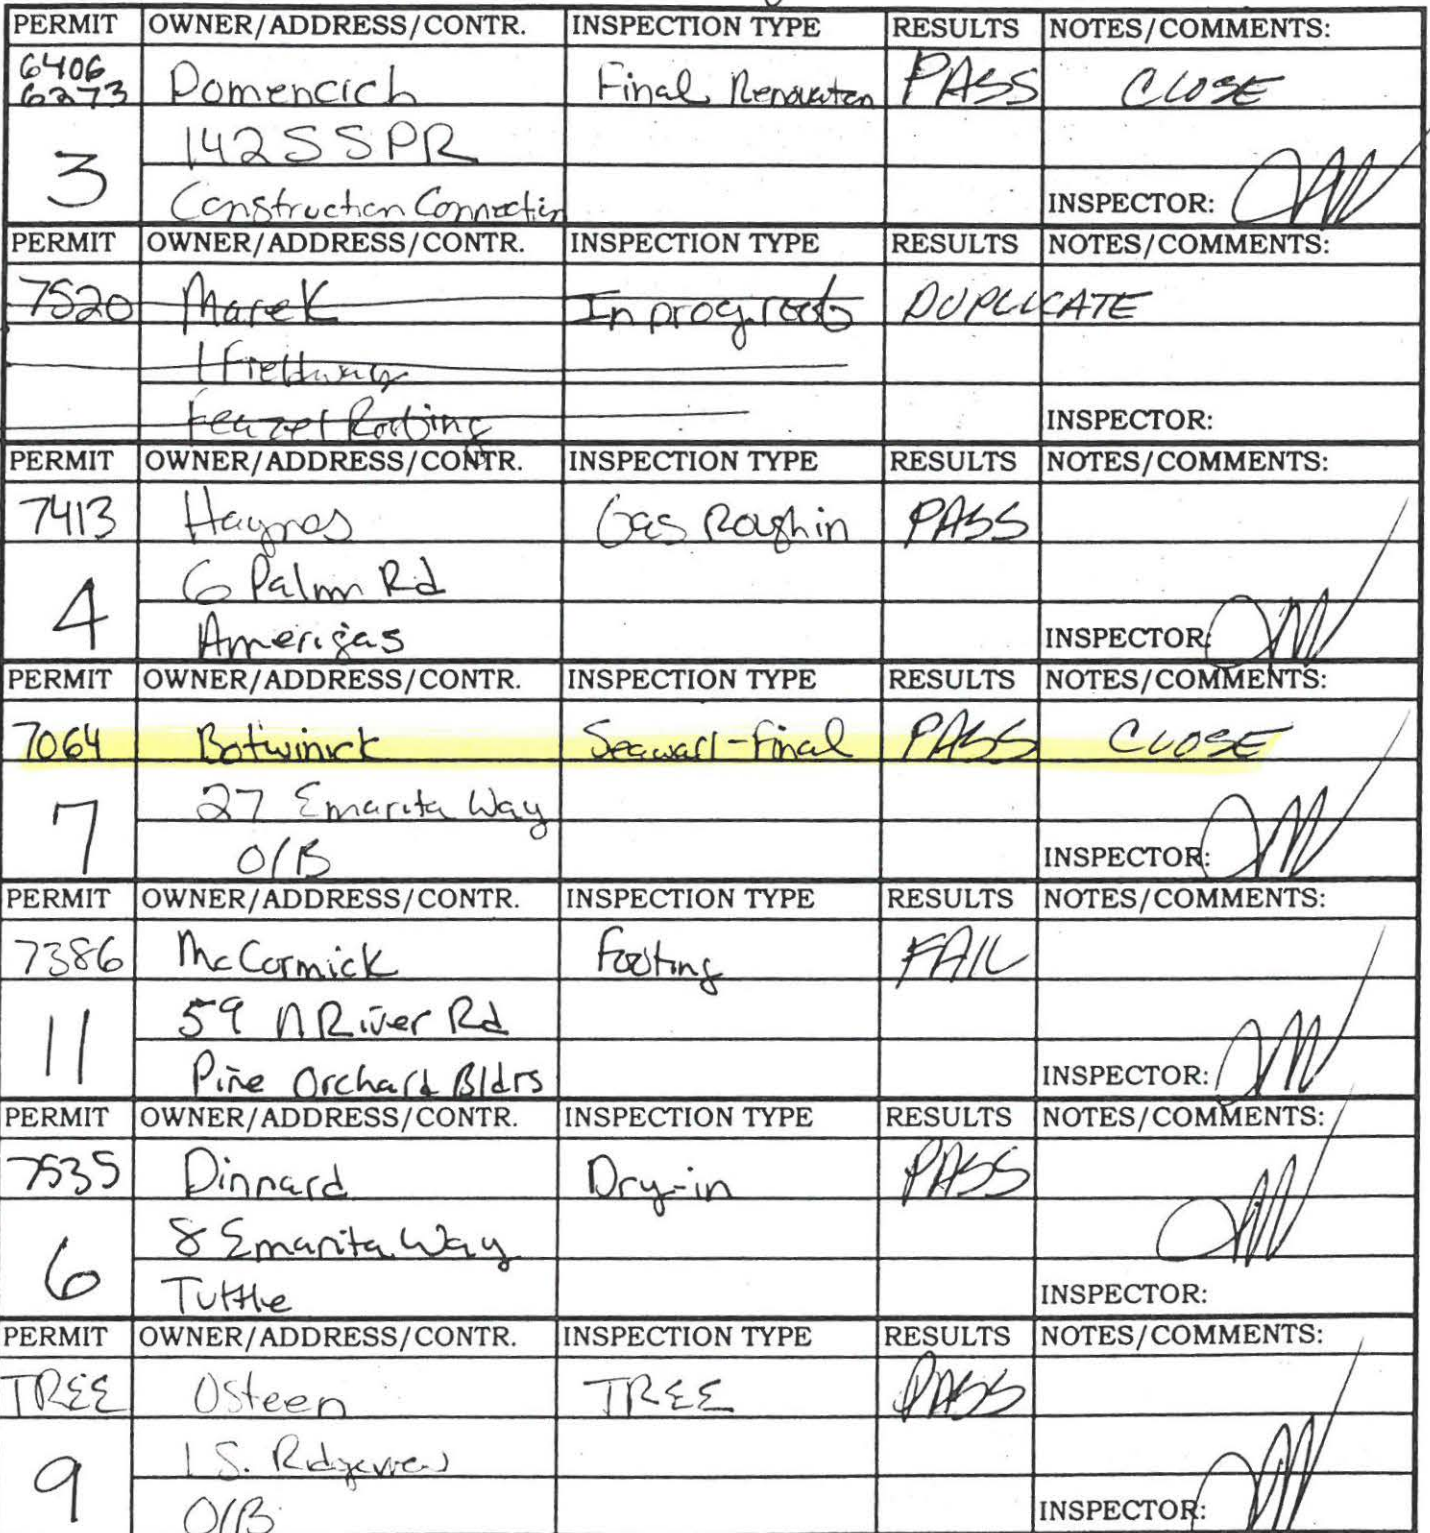 PERMIT OWNER/ADDRESS/CONTR. INSPECTION TYPE RESULTS NOTES/COMMENTS:
6406
6273 Domencich Final Renovation PASS CLOSE
142 S SPR
3
Construction Connection INSPECTOR:
PERMIT OWNER/ADDRESS/CONTR. INSPECTION TYPE RESULTS NOTES/COMMENTS:
7520 Marek In prog. DUPLICATE
1 Fieldway
INSPECTOR:
PERMIT OWNER/ADDRESS/CONTR. INSPECTION TYPE RESULTS NOTES/COMMENTS:
7413 Haynes Gas Roughin PASS
6 Palm Rd
4
Amerigas INSPECTOR:
PERMIT OWNER/ADDRESS/CONTR. INSPECTION TYPE RESULTS NOTES/COMMENTS:
7064 Botwinick Seawall-Final PASS CLOSE
27 Emarita Way
7
O/B INSPECTOR:
PERMIT OWNER/ADDRESS/CONTR. INSPECTION TYPE RESULTS NOTES/COMMENTS:
7386 McCormick Footing FAIL
59 N River Rd
11
Pine Orchard Bldrs INSPECTOR:
PERMIT OWNER/ADDRESS/CONTR. INSPECTION TYPE RESULTS NOTES/COMMENTS:
7535 Dinnard Dry-in PASS
8 Emarita Way
6
Tuttle INSPECTOR:
PERMIT OWNER/ADDRESS/CONTR. INSPECTION TYPE RESULTS NOTES/COMMENTS:
TREE Osteen TREE PASS
1 S. Ridgeview
9
O/B INSPECTOR: